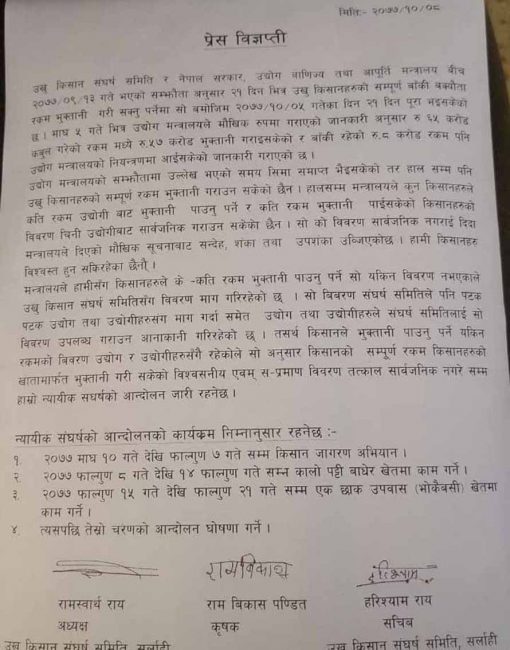 मितिः- २०७७/१०/०८
प्रेस विज्ञप्ती
उखु किसान संघर्ष समिति र नेपाल सरकार, उद्योग वाणिज्य तथा आपूर्ति मन्त्रालय बीच
२०७७/०९/१३ गते भएको सम्झौता अनुसार २१ दिन भित्र उखु किसानहरुको सम्पूर्ण बाँकी बक्यौता
रकम भुक्तानी गरी सक्नु पर्नेमा सो बमोजिम २०७७/१०/०५ गतेका दिन २१ दिन पूरा भइसकेको
छ । माघ ५ गते भित्र उद्योग मन्त्रालयले मौखिक रुपमा गराएको जानकारी अनुसार रु ६५ करोड
कबुल गरेको रकम मध्ये रु.५७ करोड भुक्तानी गराइसकेको र बाँकी रहेको रु.८ करोड रकम पनि
उद्योग मन्त्रालयको नियन्त्रणमा आईसकेको जानकारी गराएको छ ।
उद्योग मन्त्रालयको सम्झौतामा उल्लेख भएको समय सिमा समाप्त भैइसकेको तर हाल सम्म पनि
उखु किसानहरुको सम्पूर्ण रकम भुक्तानी गराउन सकेको छैन । हालसम्म मन्त्रालयले कुन किसानहरुले
कति रकम उद्योगी बाट भुक्तानी पाउनु पर्ने र कति रकम भुक्तानी पाईसकेको किसानहरुको
विवरण चिनी उद्योगीबाट सार्वजनिक गराउन सकेको छैन । सो को विवरण सार्वजनिक नगराई दिदा
मन्त्रालयले दिएको मौखिक सूचनाबाट सन्देह, शंका तथा उपशंका उब्जिएकोछ । हामी किसानहरु
विश्वस्त हुन सकिरहेका छैनौं ।
मन्त्रालयले हामीसँग किसानहरुले के -कति रकम भुक्तानी पाउनु पर्ने सो यकिन विवरण नभएकाले
उखु किसान संघर्ष समितिसँग विवरण माग गरिरहेको छ । सो बिवरण संघर्ष समितिले पनि पटक
पटक उद्योग तथा उद्योगीहरुसंग माग गर्दा समेत उद्योग तथा उद्योगीहरुले संघर्ष समितिलाई सो
विवरण उपलब्ध गराउन आनाकानी गरिरहेको छ । तसर्थ किसानले भुक्तानी पाउनु पर्ने यकिन
रकमको बिवरण उद्योग र उद्योगीहरुसंगै रहेकोले सो अनुसार किसानको सम्पूर्ण रकम किसानहरुको
खातामार्फत भुक्तानी गरी सकेको विश्वसनीय एवम् स-प्रमाण विवरण तत्काल सार्वजनिक नगरे सम्म
हाम्रो न्यायीक संघर्षको आन्दोलन जारी रहनेछ ।
न्यायीक संघर्षको आन्दोलनको कार्यक्रम निम्नानुसार रहनेछ :-
१. २०७७ माघ १० गते देखि फाल्गुण ७ गते सम्म किसान जागरण अभियान ।
२. २०७७ फाल्गुण ८ गते देखि १४ फाल्गुण गते सम्न कालो पट्टी बाधेर खेतमा काम गर्ने ।
३. २०७७ फाल्गुण १५ गते देखि फाल्गुण २१ गते सम्म एक छाक उपवास (भोकैबसी) खेतमा
काम गर्ने ।
४. त्यसपछि तेस्रो चरणको आन्दोलन घोषणा गर्ने ।
रामविकाश
हरिश्याम
रामस्वार्थ राय
राम बिकास पण्डित
हरिश्याम राय
अध्यक्ष
कृषक
सचिब
उखु किसान संघर्ष समिति, सर्लाही
उखु किसान संघर्ष समिति, सर्लाही